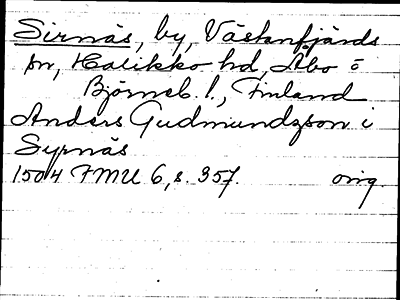 Sirnäs, by, Västanfjärds
sn, Halikko hd, Åbo o
Björneb. l., Finland
Anders Gudmundzson i
Syrnäs
1504 FMU 6, s. 357. orig.